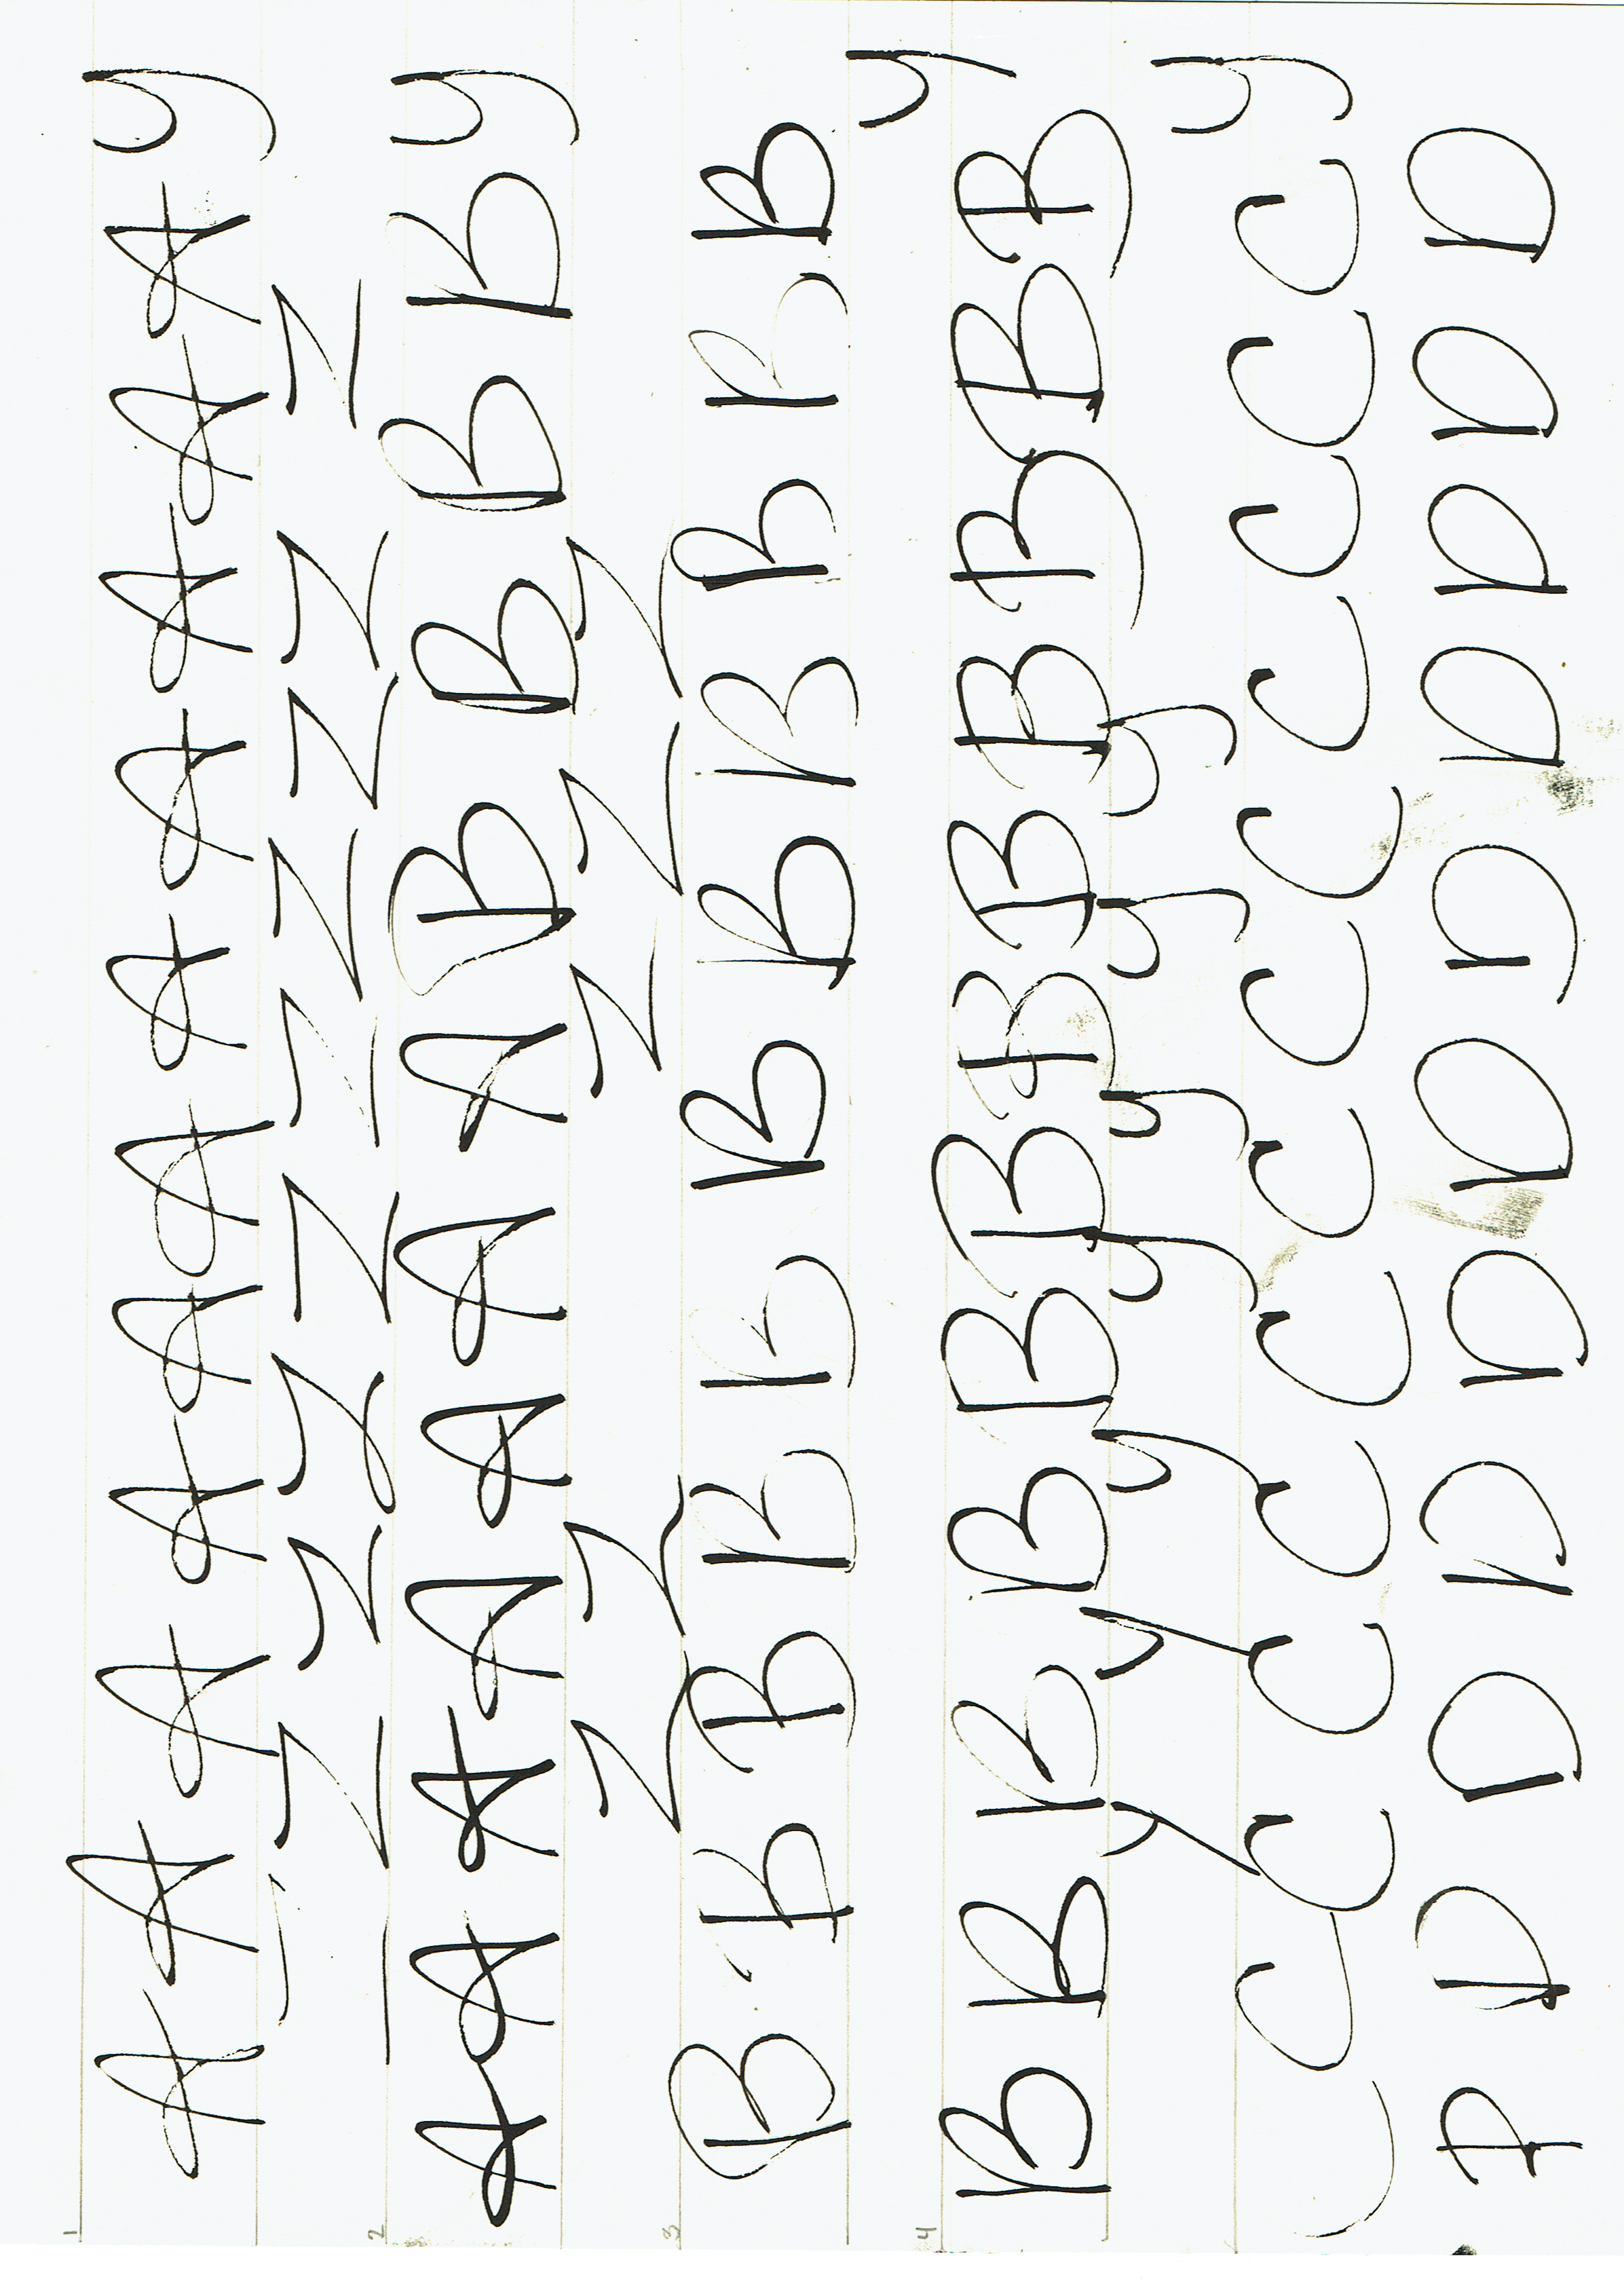 1 A A A A A A A A A A A y
Z Z Z Z Z Z Z Z Z Z
2 A A A A A A A B B B B y
Z Z Z Z Z
3 B B B B B B B B B B B y
4 B B B B B B B B B B B B
y y y y y y y y
C C C C C C C C C C C C C
D D D D D D D D D D D